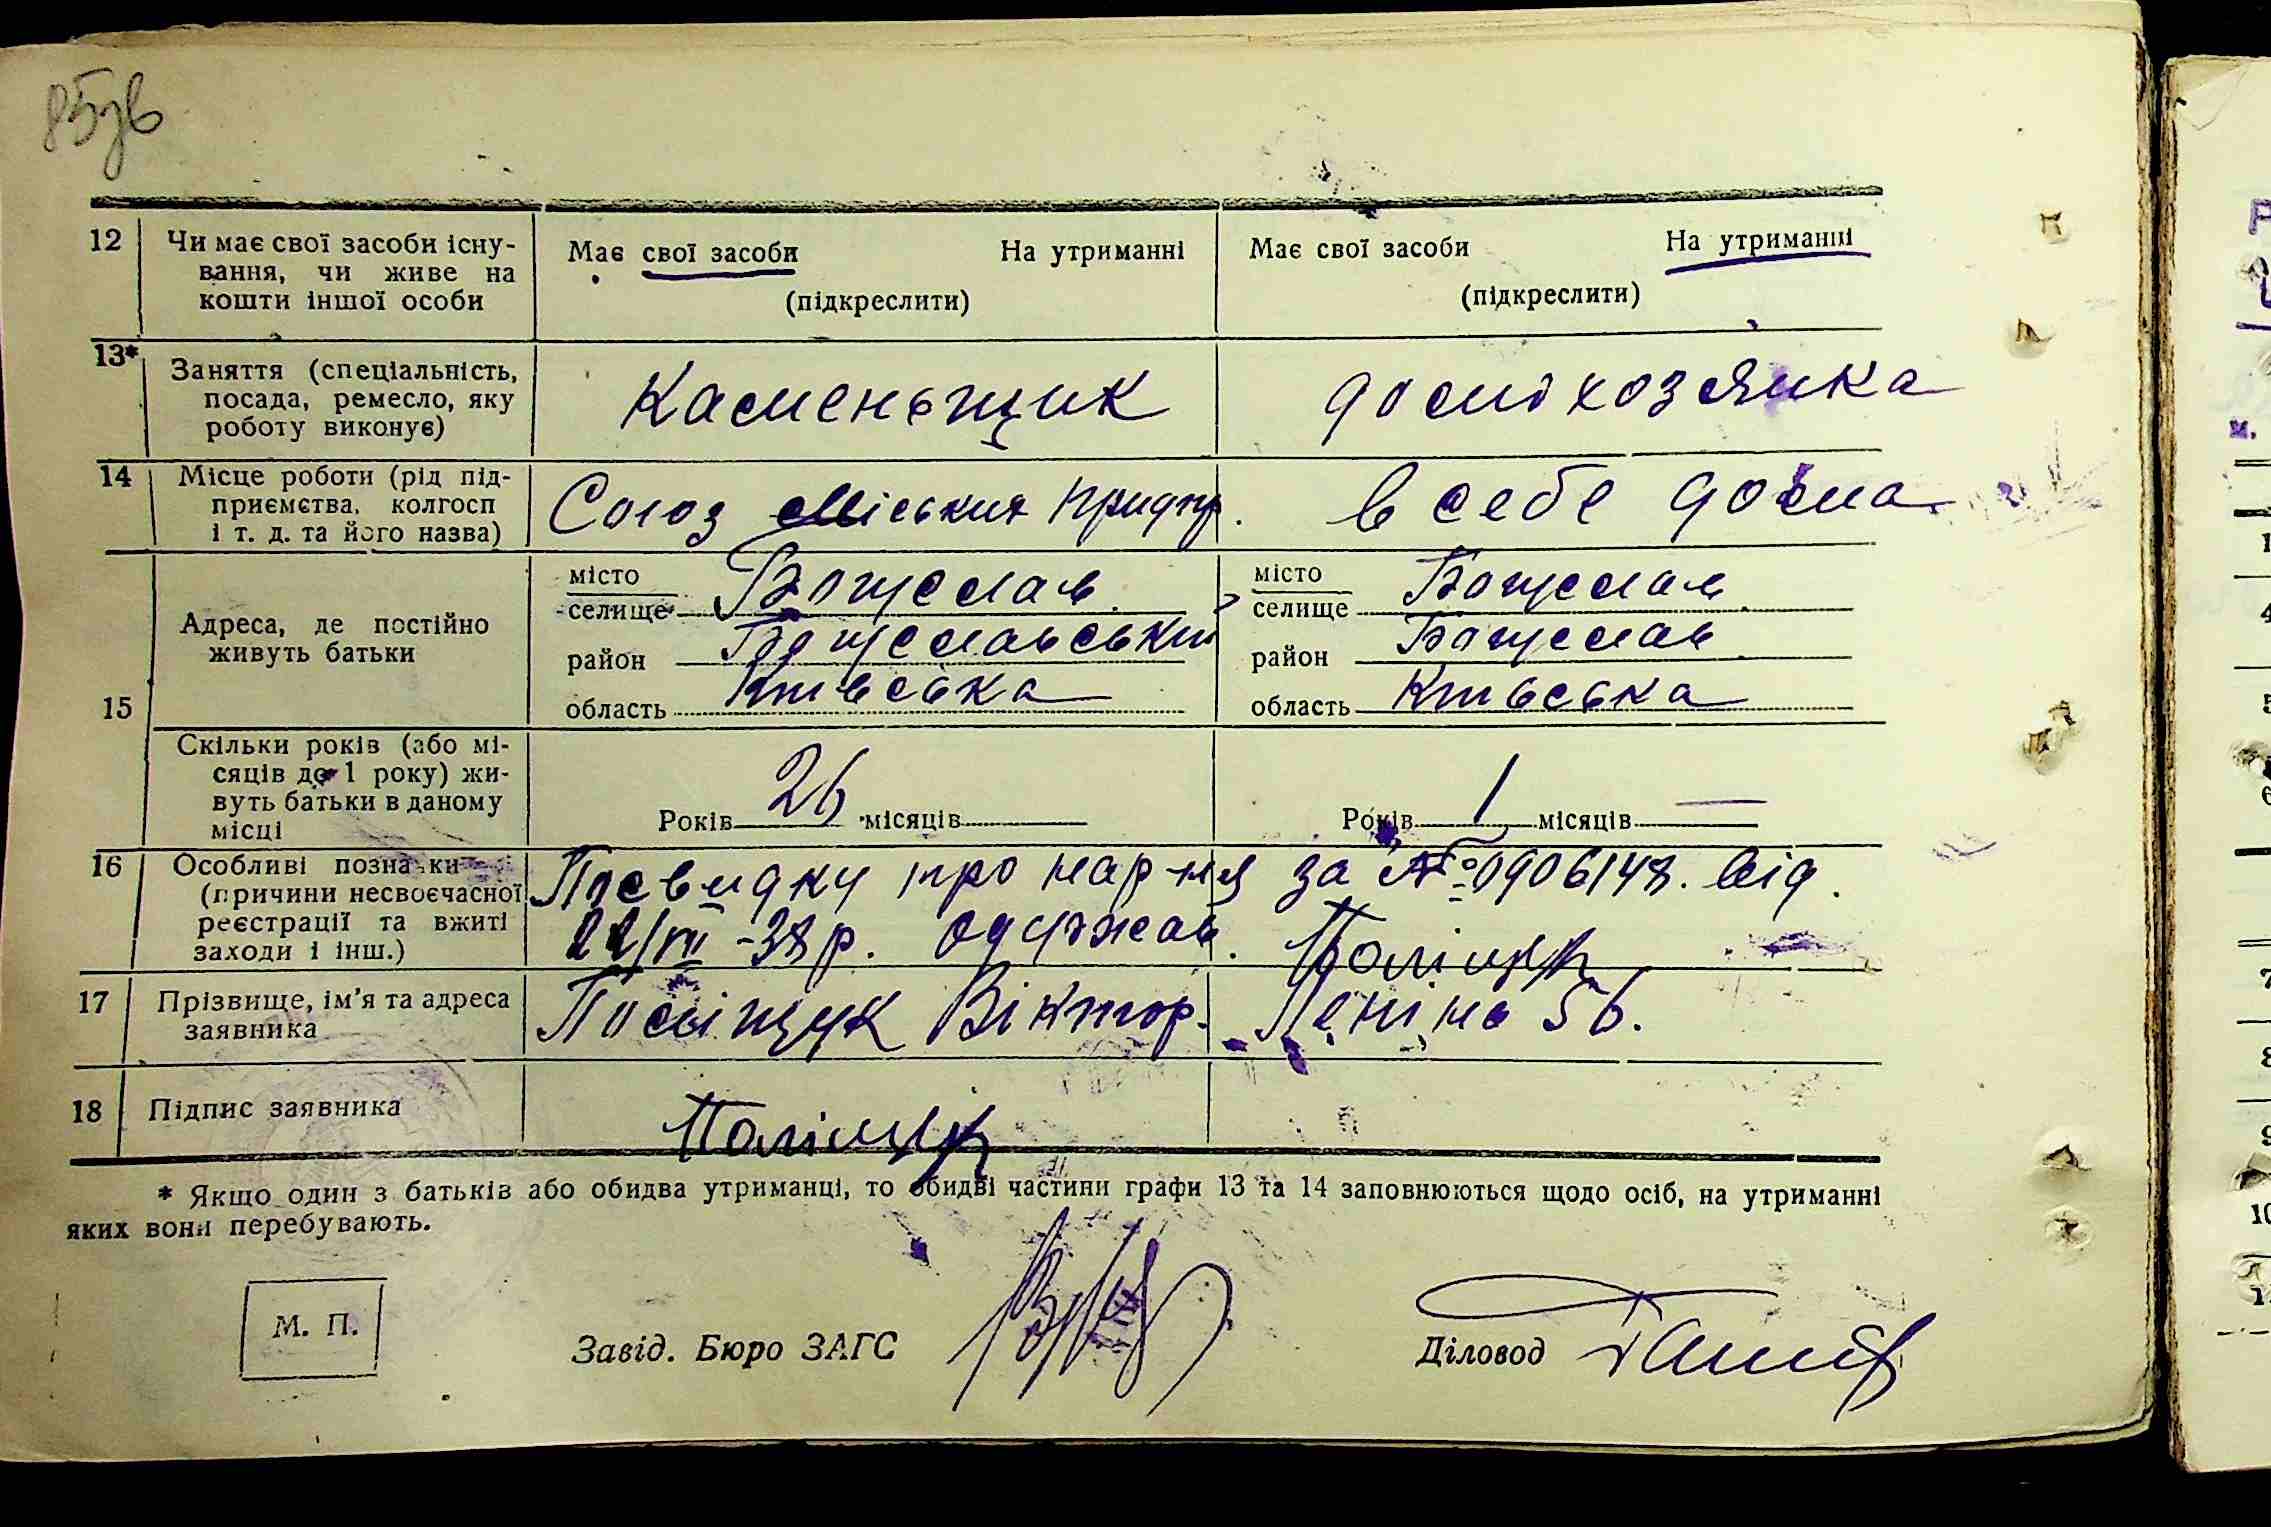 85зв
12 Чи має свої засоби існу- Має свої засоби На утриманні Має свої засоби На утриманні
вання, чи живе на
кошти іншої особи (підкреслити) (підкреслити)
13* Заняття (спеціальність,
посада, ремесло, яку Каменьщик домохозяйка
роботу виконує)
14 Місце роботи (рід під-
приємства, колгосп Союз Міських Придпр. в себе дома
і т. д. та його назва)
місто Богуслав місто Богуслав
селище селище
Адреса, де постійно район Богуславський район Богуслав
живуть батьки
15 область Київська область Київська
Скільки років (або мі-
сяців до 1 року) жи-
вуть батьки в даному Років 26 місяців Років 1 місяців —
місці
16 Особливі познаки Посвидку про нар-ня за № 0906148. від
(причини несвоєчасної
реєстрації та вжиті -38 р. одержав.
заходи і інш.)
17 Прізвище, ім'я та адреса Віктор. Леніна 56.
заявника
18 Підпис заявника
* Якщо один з батьків або обидва утриманці, то обидві частини графи 13 та 14 заповнюються щодо осіб, на утриманні
яких вони перебувають.
М. П.
Завід. Бюро ЗАГС Діловод